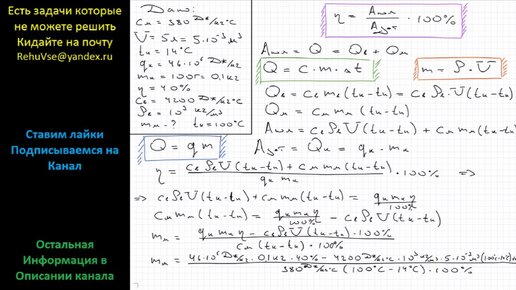 Есть задачи которые
не можете решить
Кидайте на почту
RehuVse@yandex.ru
Ставим лайки
Подписываемся на
Канал
Остальная
Информация в
Описании канала
Дано:
cм = 380 Дж/кг°C
V = 5л = 5·10⁻³ м³
tн = 14°C
qк = 46·10⁶ Дж/кг
mк = 100г = 0,1кг
η = 40%
cв = 4200 Дж/кг°C
ρв = 10³ кг/м³
mм - ? tк = 100°C
η = Aпол / Aзат · 100%
Aпол = Q = Qв + Qм
Q = c·m·Δt
m = ρ·V
Qв = cв mв (tк - tн) = cв ρв V (tк - tн)
Qм = cм mм (tк - tн)
Aпол = cв ρв V (tк - tн) + cм mм (tк - tн)
Q = qm
Aзат = Qк = qк · mк
η = cв ρв V (tк - tн) + cм mм (tк - tн) / qк mк · 100% ⇒
⇒ cв ρв V (tк - tн) + cм mм (tк - tн) = qк mк η / 100%
cм mм (tк - tн) = qк mк η / 100% - cв ρв V (tк - tн)
mм = qк mк η - cв ρв V (tк - tн) · 100% / cм (tк - tн) · 100%
mм = 46·10⁶ Дж/кг · 0,1кг · 40% - 4200 Дж/кг°C · 10³ кг/м³ · 5·10⁻³ м³ (100°C - 14°C) / 380 Дж/кг°C (100°C - 14°C) · 100%